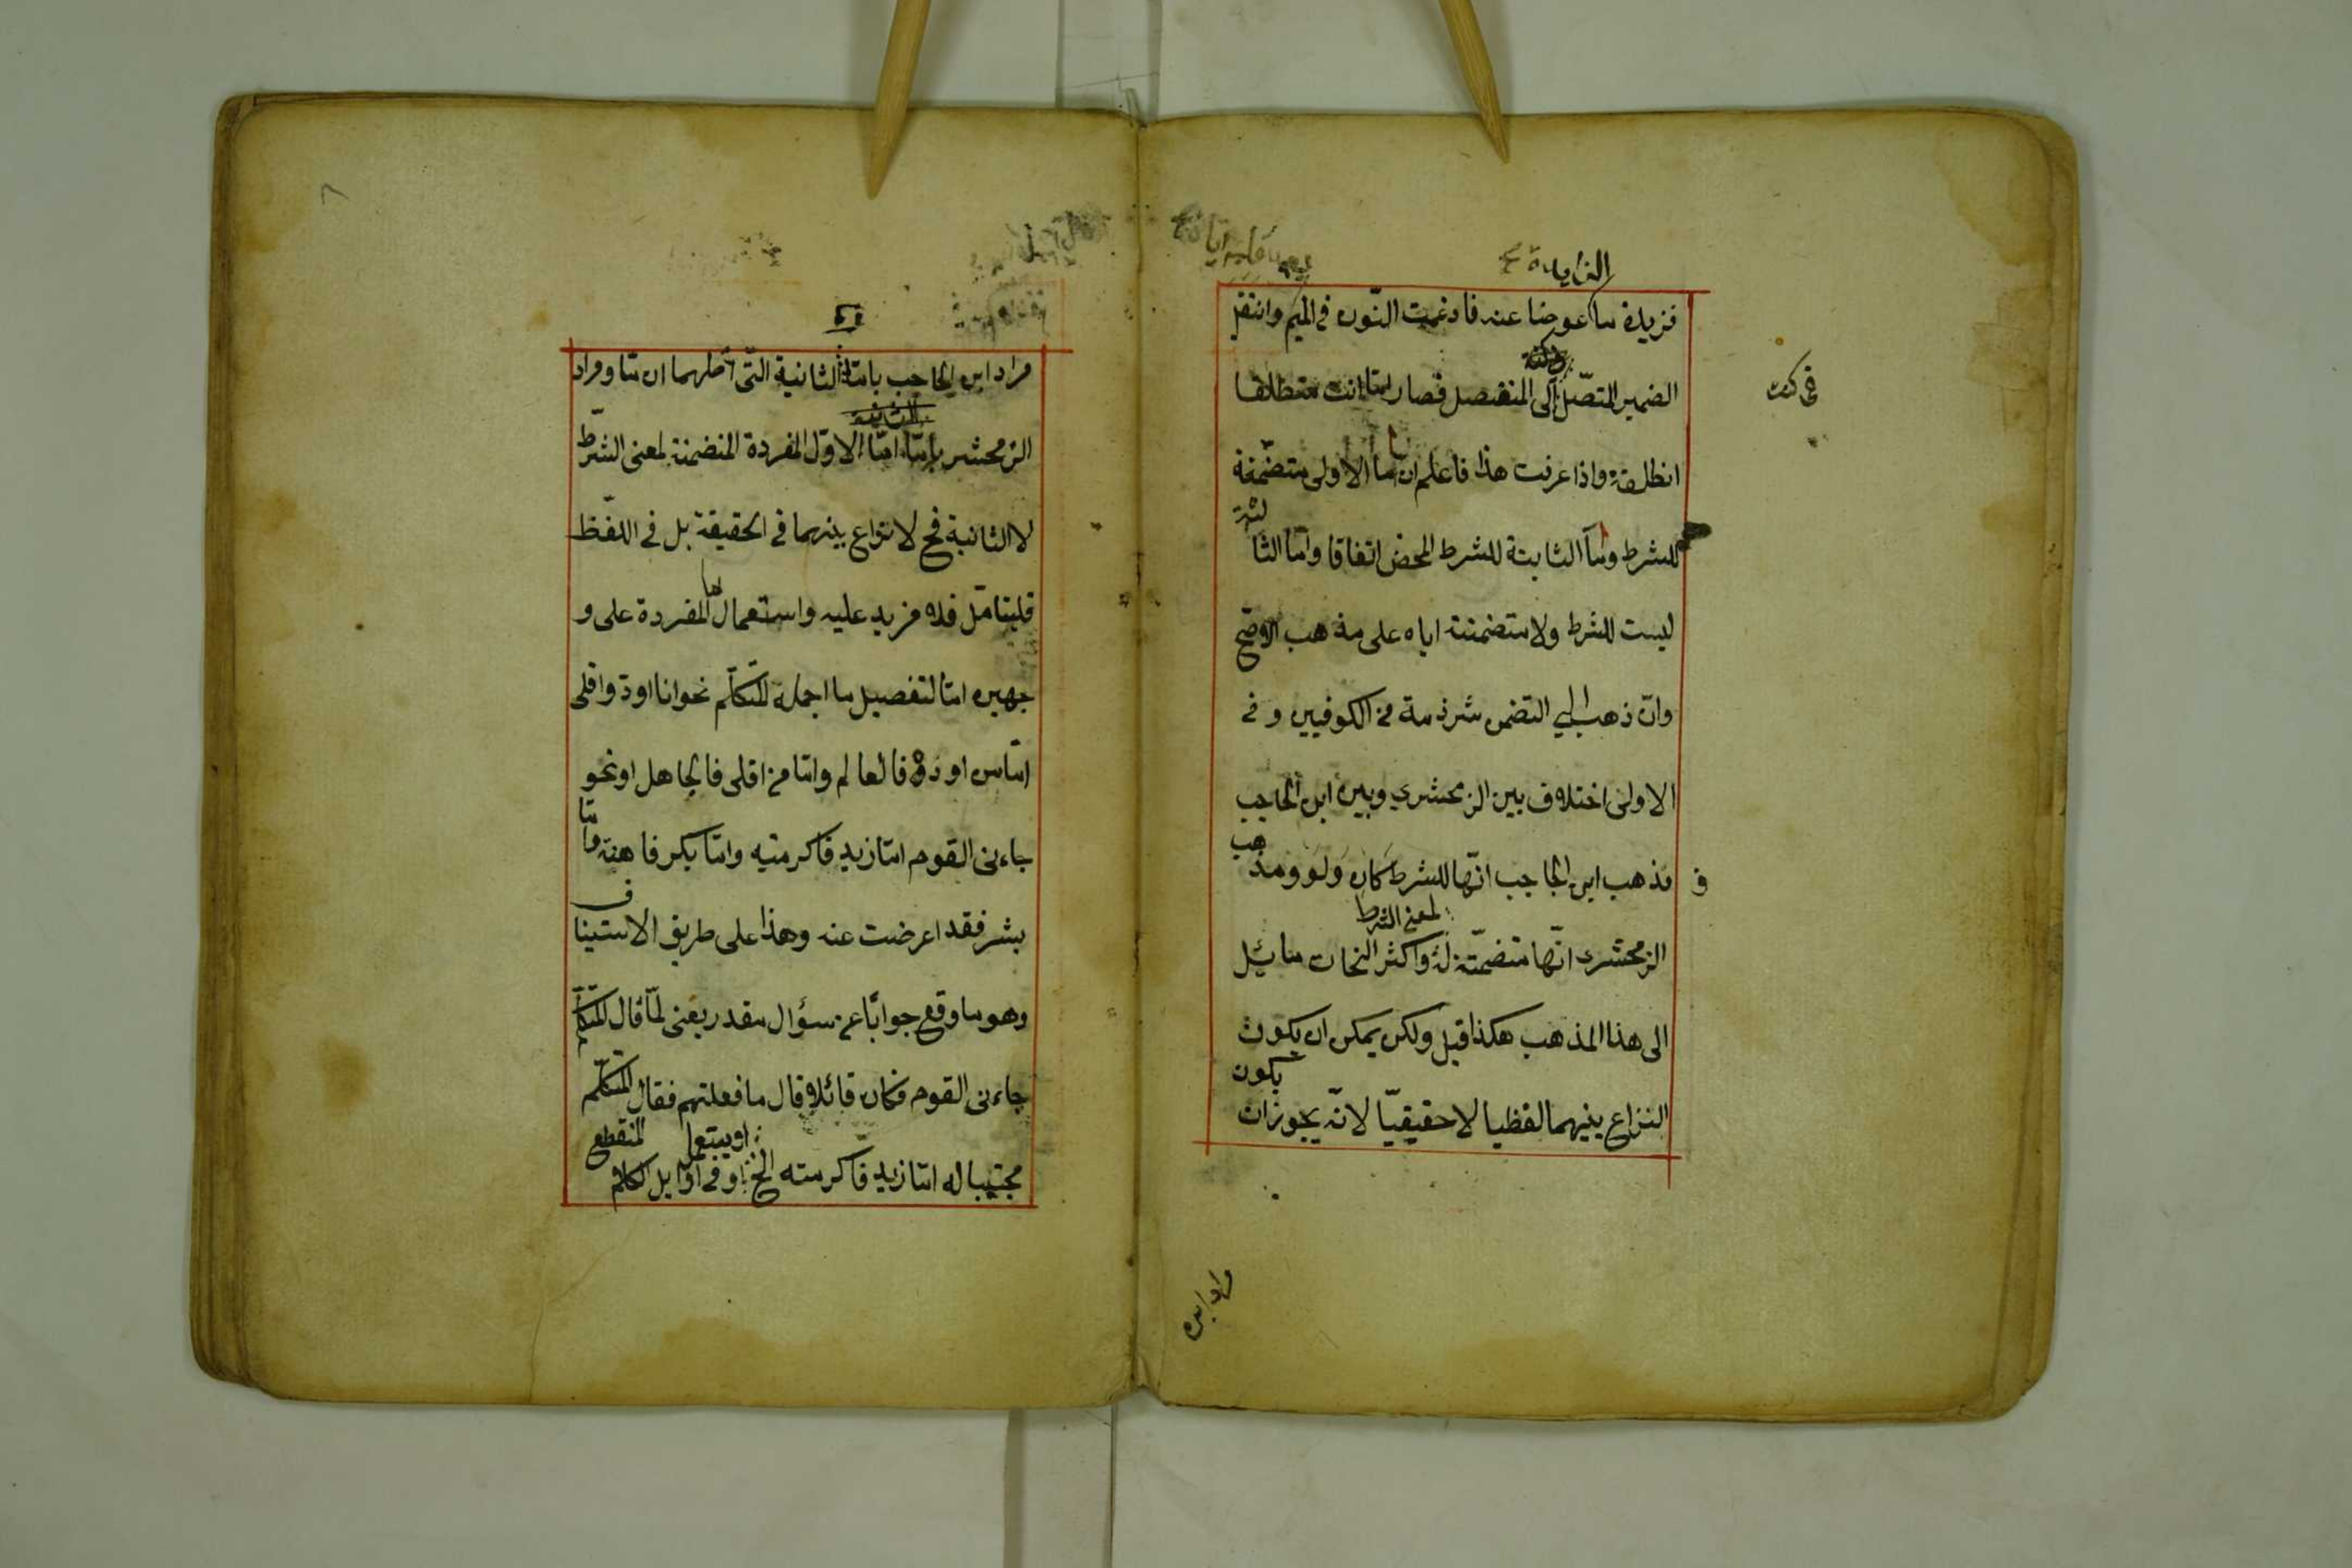 الزايدة
فزيدة ما عوضا عنه فادغمت النّون في الميم وانتقل
الضمير المتصّل الى المنفصل فصار امّا انت منطلقا
في كنت
انطلقت واذا عرفت هذا فاعلم ان امّا الاولى متضمّنة
للشرط وامّا الثابتة للشرط المحض اتفاقا وامّا الثالثة
ليست للشرط ولا متضمنة اياه على مذهب الاوضح
وان ذهب الى التضمن شرذمة من الكوفيين وفى
الاولى اختلاف بين الزمحشري وبين ابن الحاجب
فذهب ابن الحاجب انّها للشرط كان ولو ومذهب
الزمحشرى انّها متضمّنة لمعنى الشرط له واكثر النحات مائل
الى هذا المذهب هكذا قيل ولكن يمكن ان يكون
النزاع بينهما لفظيا لا حقيقيّا لانّه يجوز ان يكون
مراد ابن
٨
مراد ابن الحاجب بامّا الثانية الّتى اصلهما ان ما ومراد
الزمحشر بامّا امّا الاوّل المفردة المتضمنة لمعنى الشرّط
لا الثانية فح لا نزاع بينهما فى الحقيقة بل فى اللفّظ
فليتامّل فله مزيد عليه واستعمال امّا المفردة على و
جهين امّا لتفصيل ما اجمله المتكلّم نحو انا اودّ واقلى
امّا من اودّه فالعالم وامّا من اقلى فالجاهل او نحو
جاءنى القوم امّا زيد فاكرمته وامّا بكر فاهنته وامّا
بشر فقد اعرضت عنه وهذا على طريق الاستيناف
وهو ما وقع جوابًا عن سؤال مقدر يعنى لمّا قال المتكلّم
جاءنى القوم فكان قائلا قال ما فعلتهم فقال المتكلّم
مجيبا له امّا زيد فاكرمته الخ او فى اوايل الكلام
او يستعمل المنقطع